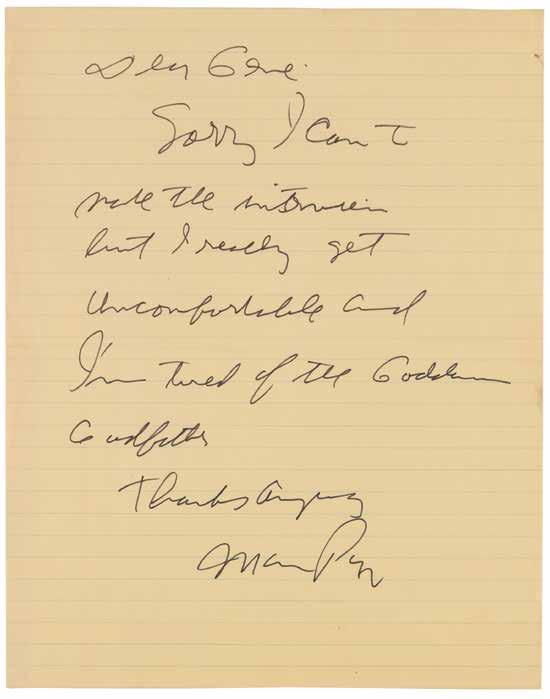 Dear Gene:
Sorry I can't
make the interview
but I really get
uncomfortable and
I'm tired of the Goddamn
Godfather
Thanks anyway
Mario Puzo